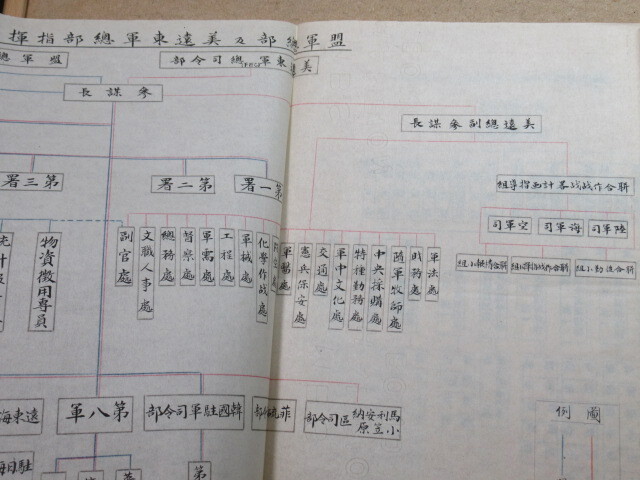 盟軍總部及美遠東軍總部指揮
美遠東軍總司令部
盟軍總
參謀長
美遠總副參謀長
聯合作战战畧計画指導組
陸軍司
海軍司
空軍司
第一署
第二署
第三署
軍法處
時務處
隨軍牧師處
中央採購處
特種勤務處
軍中文化處
交通處
憲兵保安處
化學作战處
軍械處
工程處
軍需處
督察處
總務處
文職人事處
副官處
物資徵用專員
馬利安納
小笠原
區司令部
韓國駐軍司令部
第八軍
遠東海
圖例
駐日海
第